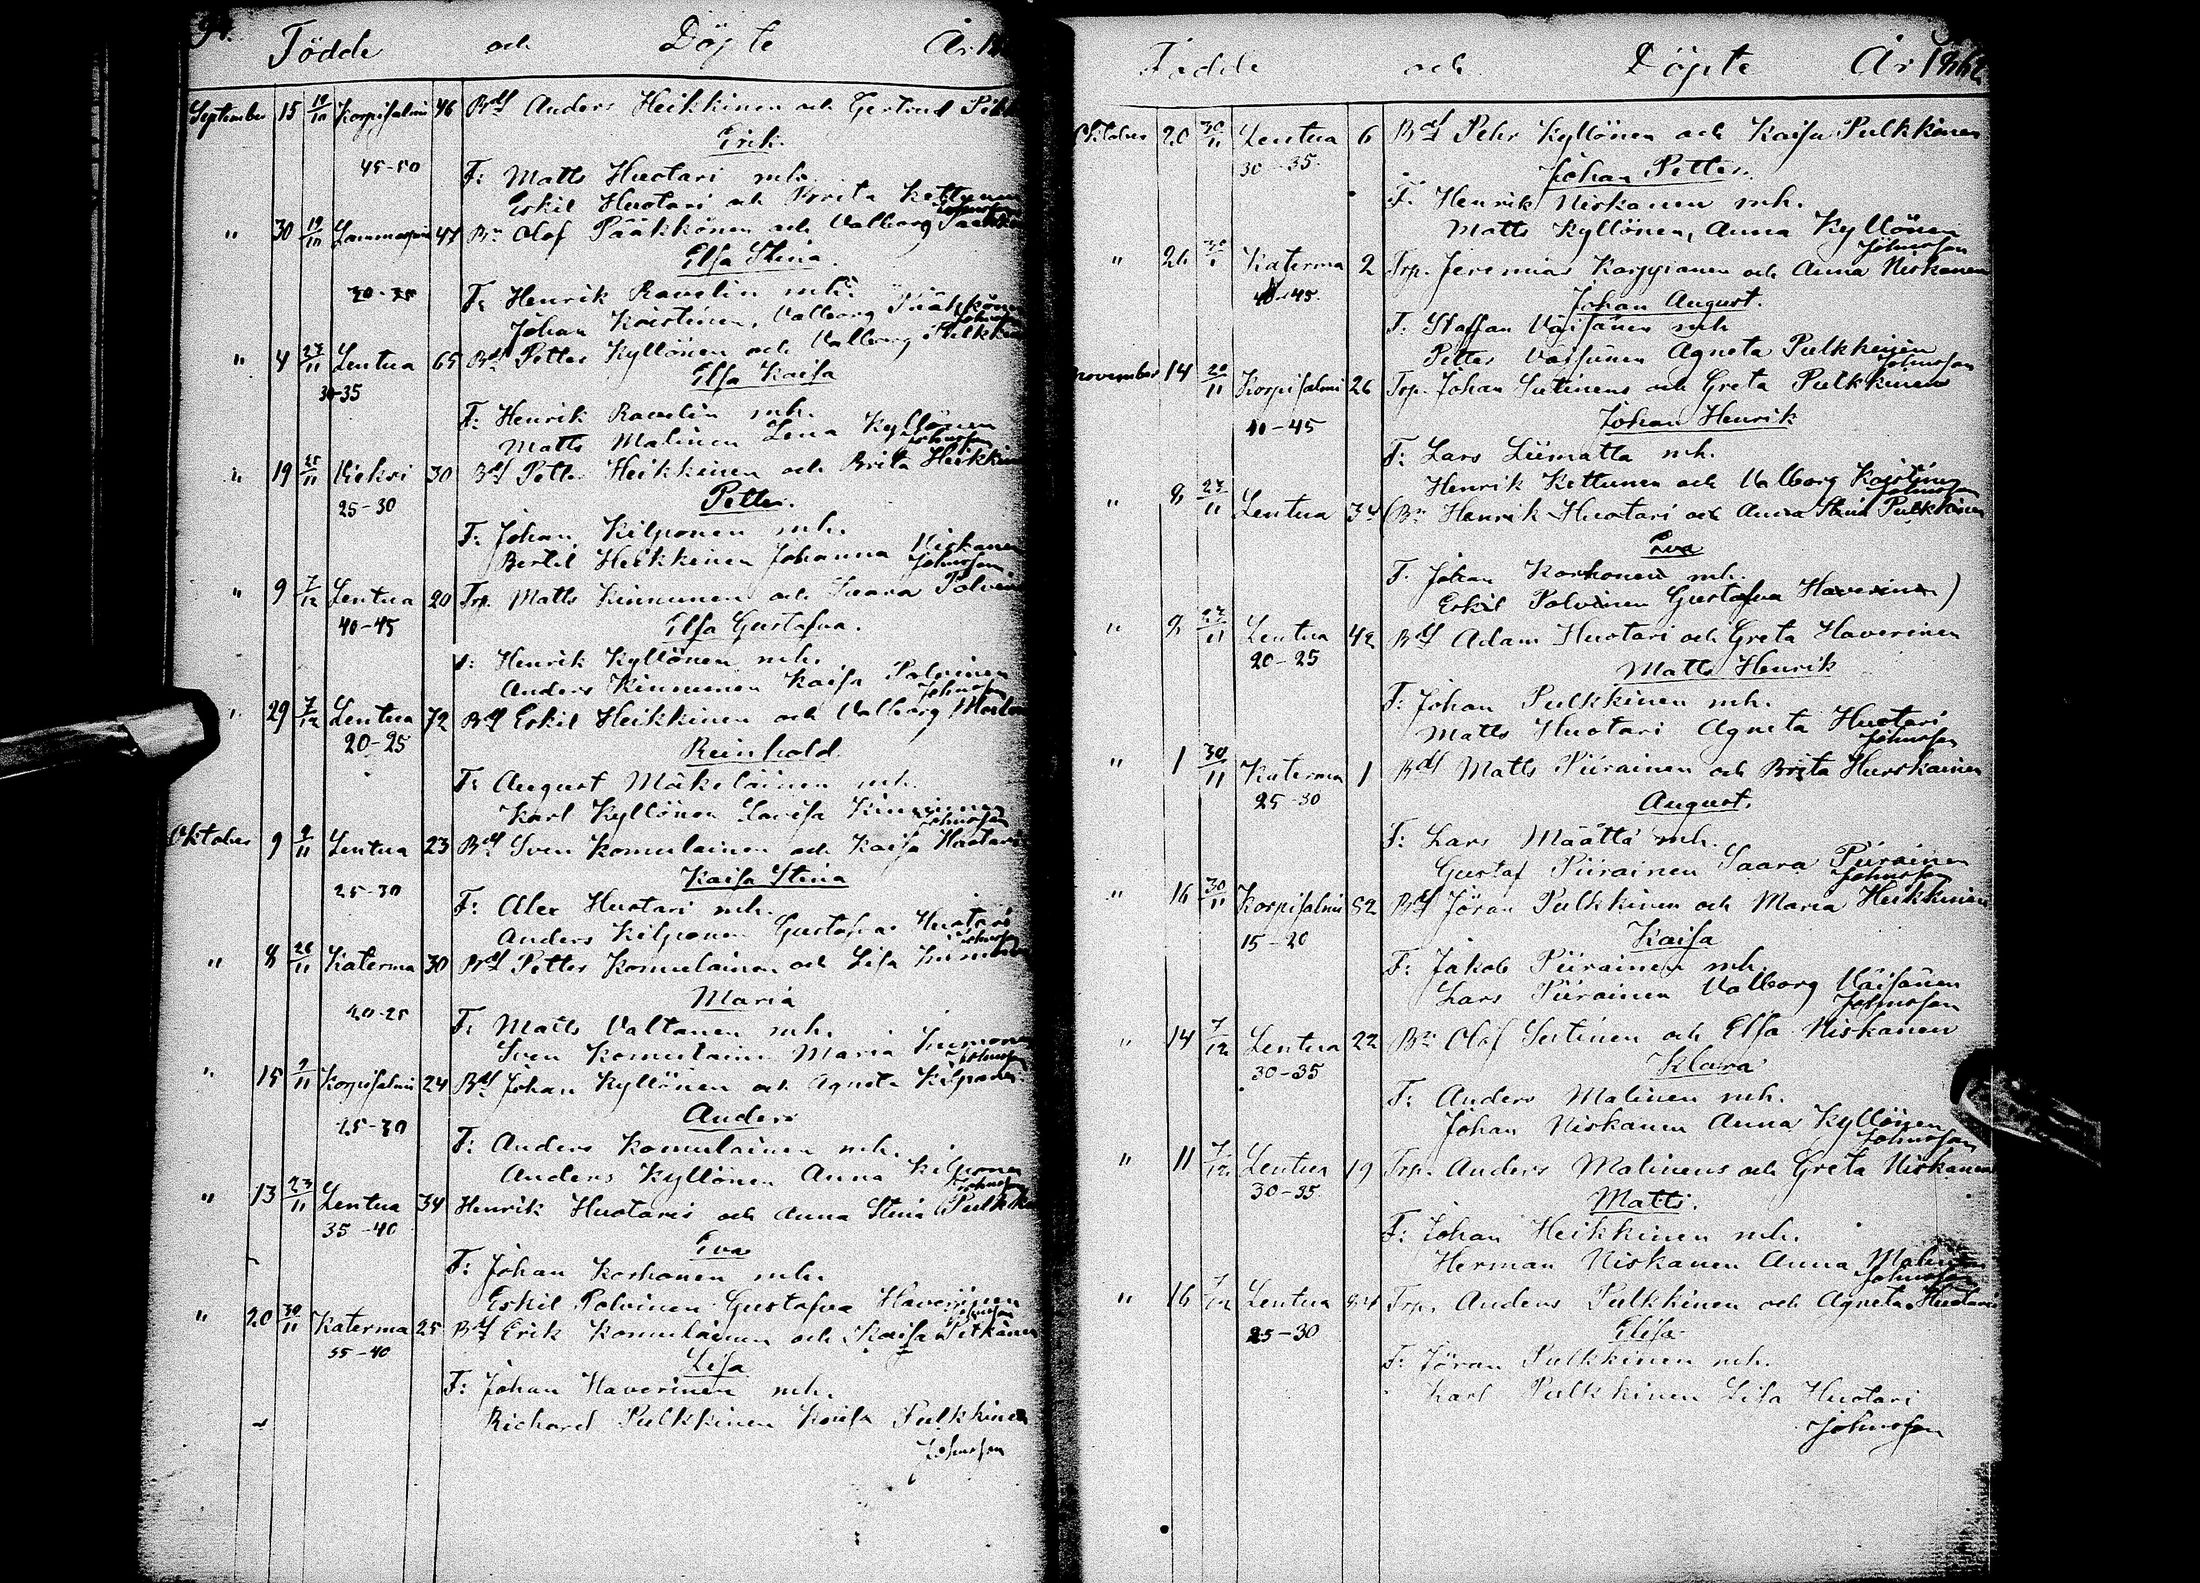 94.
Födde och Döpte År
September 15 19/10 Korpisalmi 46 Bdl Anders Heikkinen och Gertrud
Erik
45-50
F: Matts Huotari mh.
Eskil Huotari och Brita
" 30 19/10 Lammasperä 47 Bn Olof Pääkkönen och Valborg
Elsa Stina
F: Henrik Ravelin mh.
Johan Koistinen, Valborg Pääkkönen
Johnsson
" 4 23/11 Lentua 65 Bdl Petter Kyllönen och Valborg
30-35
Elsa Kaisa
F: Henrik Ravelin mh.
Matts Malinen Lena Kyllönen
Johnsson
" 19 25/11 Vieksi 30 Bdl Petter Heikkinen och Brita
25-30
Petter.
F: Johan Kilponen mh.
Bertil Heikkinen Johanna Niskanen
Johnsson
" 9 7/12 Lentua 20 Trp. Matts Kinnunen och Saara
40-45
Elsa Gustafva.
F: Henrik Kyllönen mh.
Anders Kinnunen Kaisa Polvinen
Johnsson
" 29 7/12 Lentua 72 Bdl Eskil Heikkinen och Valborg
20-25
Reinhold
F: August Mäkeläinen mh.
Karl Kyllönen Lovisa Kinnunen
Johnsson
Oktober 9 9/11 Lentua 23 Bdl Sven Komulainen och Kaisa Huotari
Kaisa Stina
25-30
F: Alex Huotari mh.
Anders Kilponen Gustafva Huotari
Johnsson
" 8 26/11 Katerma 30 Bdl Petter Komulainen och Lisa
Maria
20-25
F: Matts Valtanen mh.
Sven Komulainen Maria
Johnsson
" 15 9/11 Korpisalmi 24 Bdl Johan Kyllönen och Agneta Kilponen
Anders
25-30
F: Anders Komulainen mh.
Anders Kyllönen Anna Kilponen
Johnsson
" 13 23/11 Lentua 34 Henrik Huotari och Anna Stina
35-40
Eva
F: Johan Korhonen mh.
Eskil Polvinen Gustafva Haverinen
Johnsson
" 20 30/11 Katerma 25 Bdl Erik Komulainen och Kaisa Pitkänen
35-40
Lisa
F: Johan Haverinen mh.
Richard Pulkkinen Kaisa Pulkkinen
Johnsson
Födde och Döpte År 1862
Oktober 20 30/11 Lentua 6 Bdl Pehr Kyllönen och Kaisa Pulkkinen
30-35.
Johan Petter.
F: Henrik Niskanen mh.
Matts Kyllönen, Anna Kyllönen
Johnsson
" 26 Katerma 2 Trp. Jeremias Karppanen och Anna Niskanen
40-45.
Johan August.
F: Staffan Väisänen mh
Petter Väisänen Agneta Pulkkinen
Johnsson
November 14 22/11 Korpisalmi 26 Trp. Johan Sutinens och Greta Pulkkinens
Johan Henrik
40-45
F: Lars Liimatta mh.
Henrik Kettunen och Valborg Koistinen
Johnsson
" 8 23/11 Lentua 34 (Bn Henrik Huotari och Anna Stina Pulkkinen
Eva
F. Johan Korhonen mh.
Eskil Polvinen Gustafva Haverinen)
" 9 23/11 Lentua 42 Bdl Adam Huotari och Greta Haverinen
20-25
Matts Henrik
F: Johan Pulkkinen mh.
Matts Huotari Agneta Huotari
Johnsson
" 1 30/11 Katerma 1 Bdl Matts Piirainen och Brita Hurskainen
25-30
August.
F: Lars Määttä mh.
Gustaf Piirainen Saara Piirainen
Johnsson
" 16 30/11 Korpisalmi 52 Bdl Jöran Pulkkinen och Maria Heikkinen
15-20
Kaisa
F: Jakob Piirainen mh.
Lars Piirainen Valborg Väisänen
Johnsson
" 14 7/12 Lentua 22 Bn Olof Sutinen och Elsa Niskanen
30-35
Klara
F: Anders Malinen mh.
Johan Niskanen Anna Kyllönen
Johnsson
" 11 7/12 Lentua 19 Trp. Anders Malinens och Greta Niskanen
30-35
Matts.
F: Johan Heikkinen mh.
Herman Niskanen Anna Malinen
Johnsson
" 16 7/12 Lentua Trp. Anders Pulkkinen och Agneta Huotari
25-30
Elisa
F: Jöran Pulkkinen mh.
Karl Pulkkinen Lisa Huotari
Johnsson